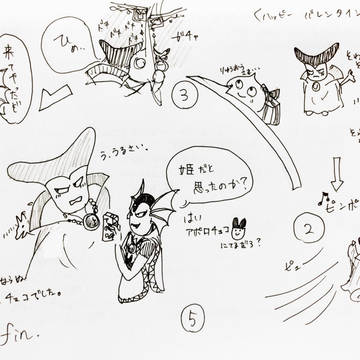 くハッピー バレンタイン
ガチャ
ひめ…
③
来
てやったぞ
りゅうおう
さま…
♪ピンポ
②
ピュー
う、うるさい。
姫だと
思ったのか？
はい
アポロチョコ
にてるだろ？
チョコでした。
⑤
fin.